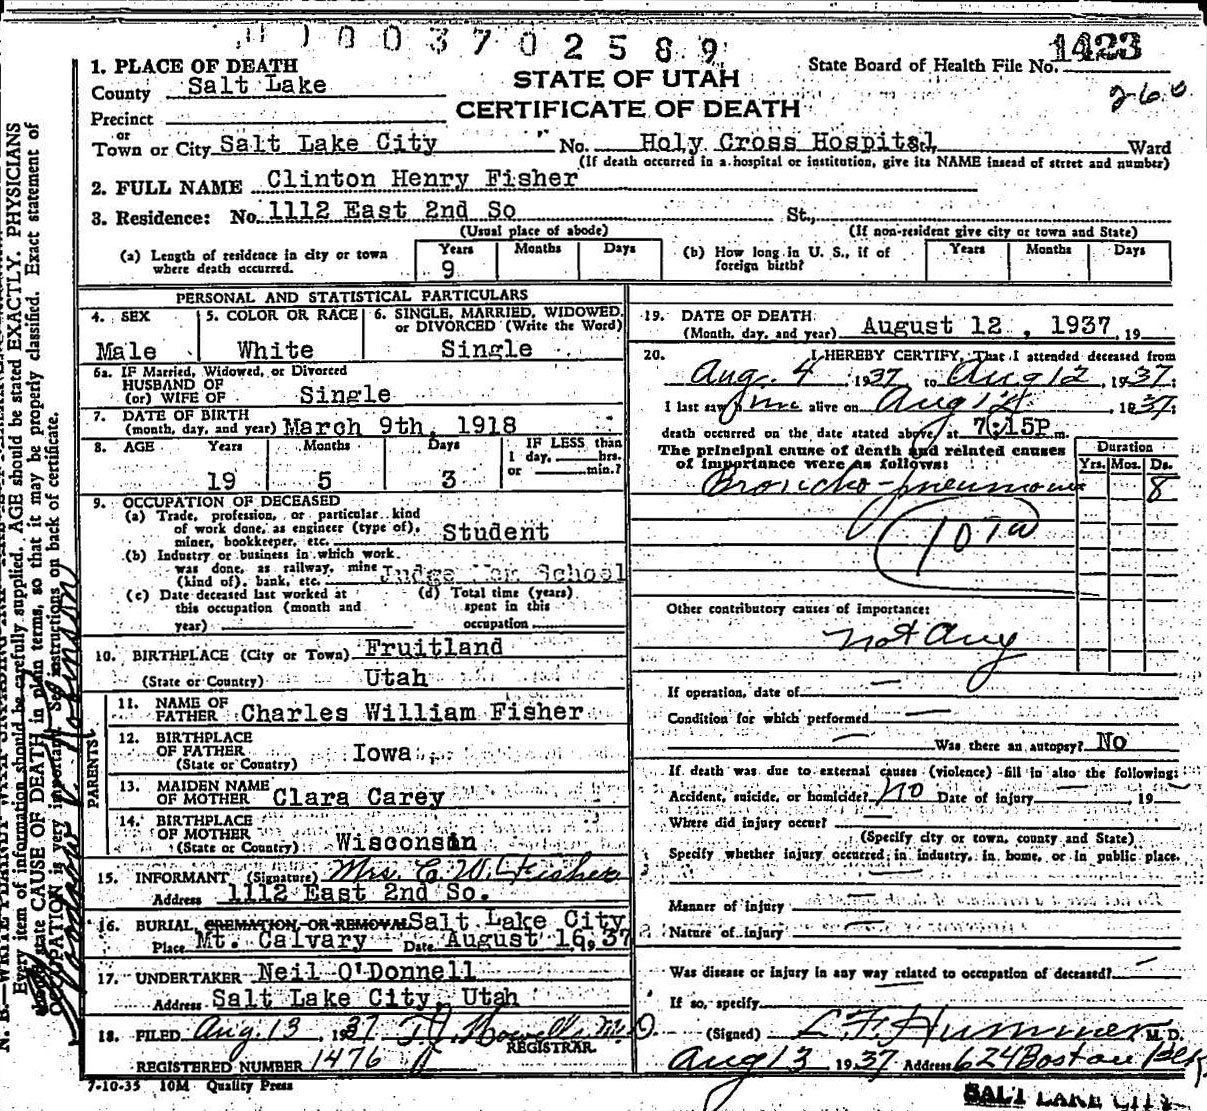 0003702589
1423
STATE OF UTAH
CERTIFICATE OF DEATH
State Board of Health File No.
260
1. PLACE OF DEATH
County Salt Lake
Precinct
or
Town or City Salt Lake City No. Holy Cross Hospital Ward
(If death occurred in a hospital or institution, give its NAME insead of street and number)
2. FULL NAME Clinton Henry Fisher
3. Residence: No. 1112 East 2nd So St.,
(Usual place of abode) (If non-resident give city or town and State)
(a) Length of residence in city or town where death occurred. Years 9 Months Days
(b) How long in U. S., if of foreign birth? Years Months Days
PERSONAL AND STATISTICAL PARTICULARS
4. SEX Male
5. COLOR OR RACE White
6. SINGLE, MARRIED, WIDOWED, or DIVORCED (Write the Word) Single
6a. IF Married, Widowed, or Divorced
HUSBAND OF
(or) WIFE OF Single
7. DATE OF BIRTH
(month, day, and year) March 9th, 1918
8. AGE Years 19 Months 5 Days 3
IF LESS than
1 day, hrs.
or min.?
9. OCCUPATION OF DECEASED
(a) Trade, profession, or particular kind
of work done, as engineer (type of),
miner, bookkeeper, etc. Student
(b) Industry or business in which work
was done, as railway, mine
(kind of), bank, etc. Judge Mem School
(c) Date deceased last worked at
this occupation (month and
year)
(d) Total time (years)
spent in this
occupation
10. BIRTHPLACE (City or Town) Fruitland
(State or Country) Utah
PARENTS
11. NAME OF
FATHER Charles William Fisher
12. BIRTHPLACE
OF FATHER Iowa
(State or Country)
13. MAIDEN NAME
OF MOTHER Clara Carey
14. BIRTHPLACE
OF MOTHER
(State or Country) Wisconsin
15. INFORMANT (Signature) Mrs. C. W. Fisher
Address 1112 East 2nd So.
16. BURIAL, CREMATION, OR REMOVAL Salt Lake City
Place Mt. Calvary Date August 16, 37
17. UNDERTAKER Neil O'Donnell
Address Salt Lake City, Utah
18. FILED Aug. 13, 1937 M.D.
REGISTRAR.
REGISTERED NUMBER 1476
7-10-35 10M Quality Press
19. DATE OF DEATH
(Month, day, and year) August 12, 1937, 19
20. I HEREBY CERTIFY, That I attended deceased from
Aug. 4 1937 to Aug 12, 1937;
I last saw him alive on Aug 12 1937;
death occurred on the date stated above, at 7:15P m.
The principal cause of death and related causes
of importance were as follows:
Duration
Yrs. Mos. Ds.
Broncho-pneumonia 8
107a
Other contributory causes of importance:
not any
If operation, date of —
Condition for which performed —
— Was there an autopsy? No
If death was due to external causes (violence) fill in also the following:
Accident, suicide, or homicide? no Date of injury , 19
Where did injury occur?
(Specify city or town, county and State)
Specify whether injury occurred in industry, in home, or in public place.
Manner of injury
Nature of injury
Was disease or injury in any way related to occupation of deceased? —
If so, specify
(Signed) L F Hummer M. D.
Aug 13 1937 Address 624 Boston Blk
SALT LAKE CITY
Every item of information should be carefully supplied. AGE should be stated EXACTLY. PHYSICIANS
state CAUSE OF DEATH in plain terms, so that it may be properly classified. Exact statement of
OCCUPATION is very important. See instructions on back of certificate.